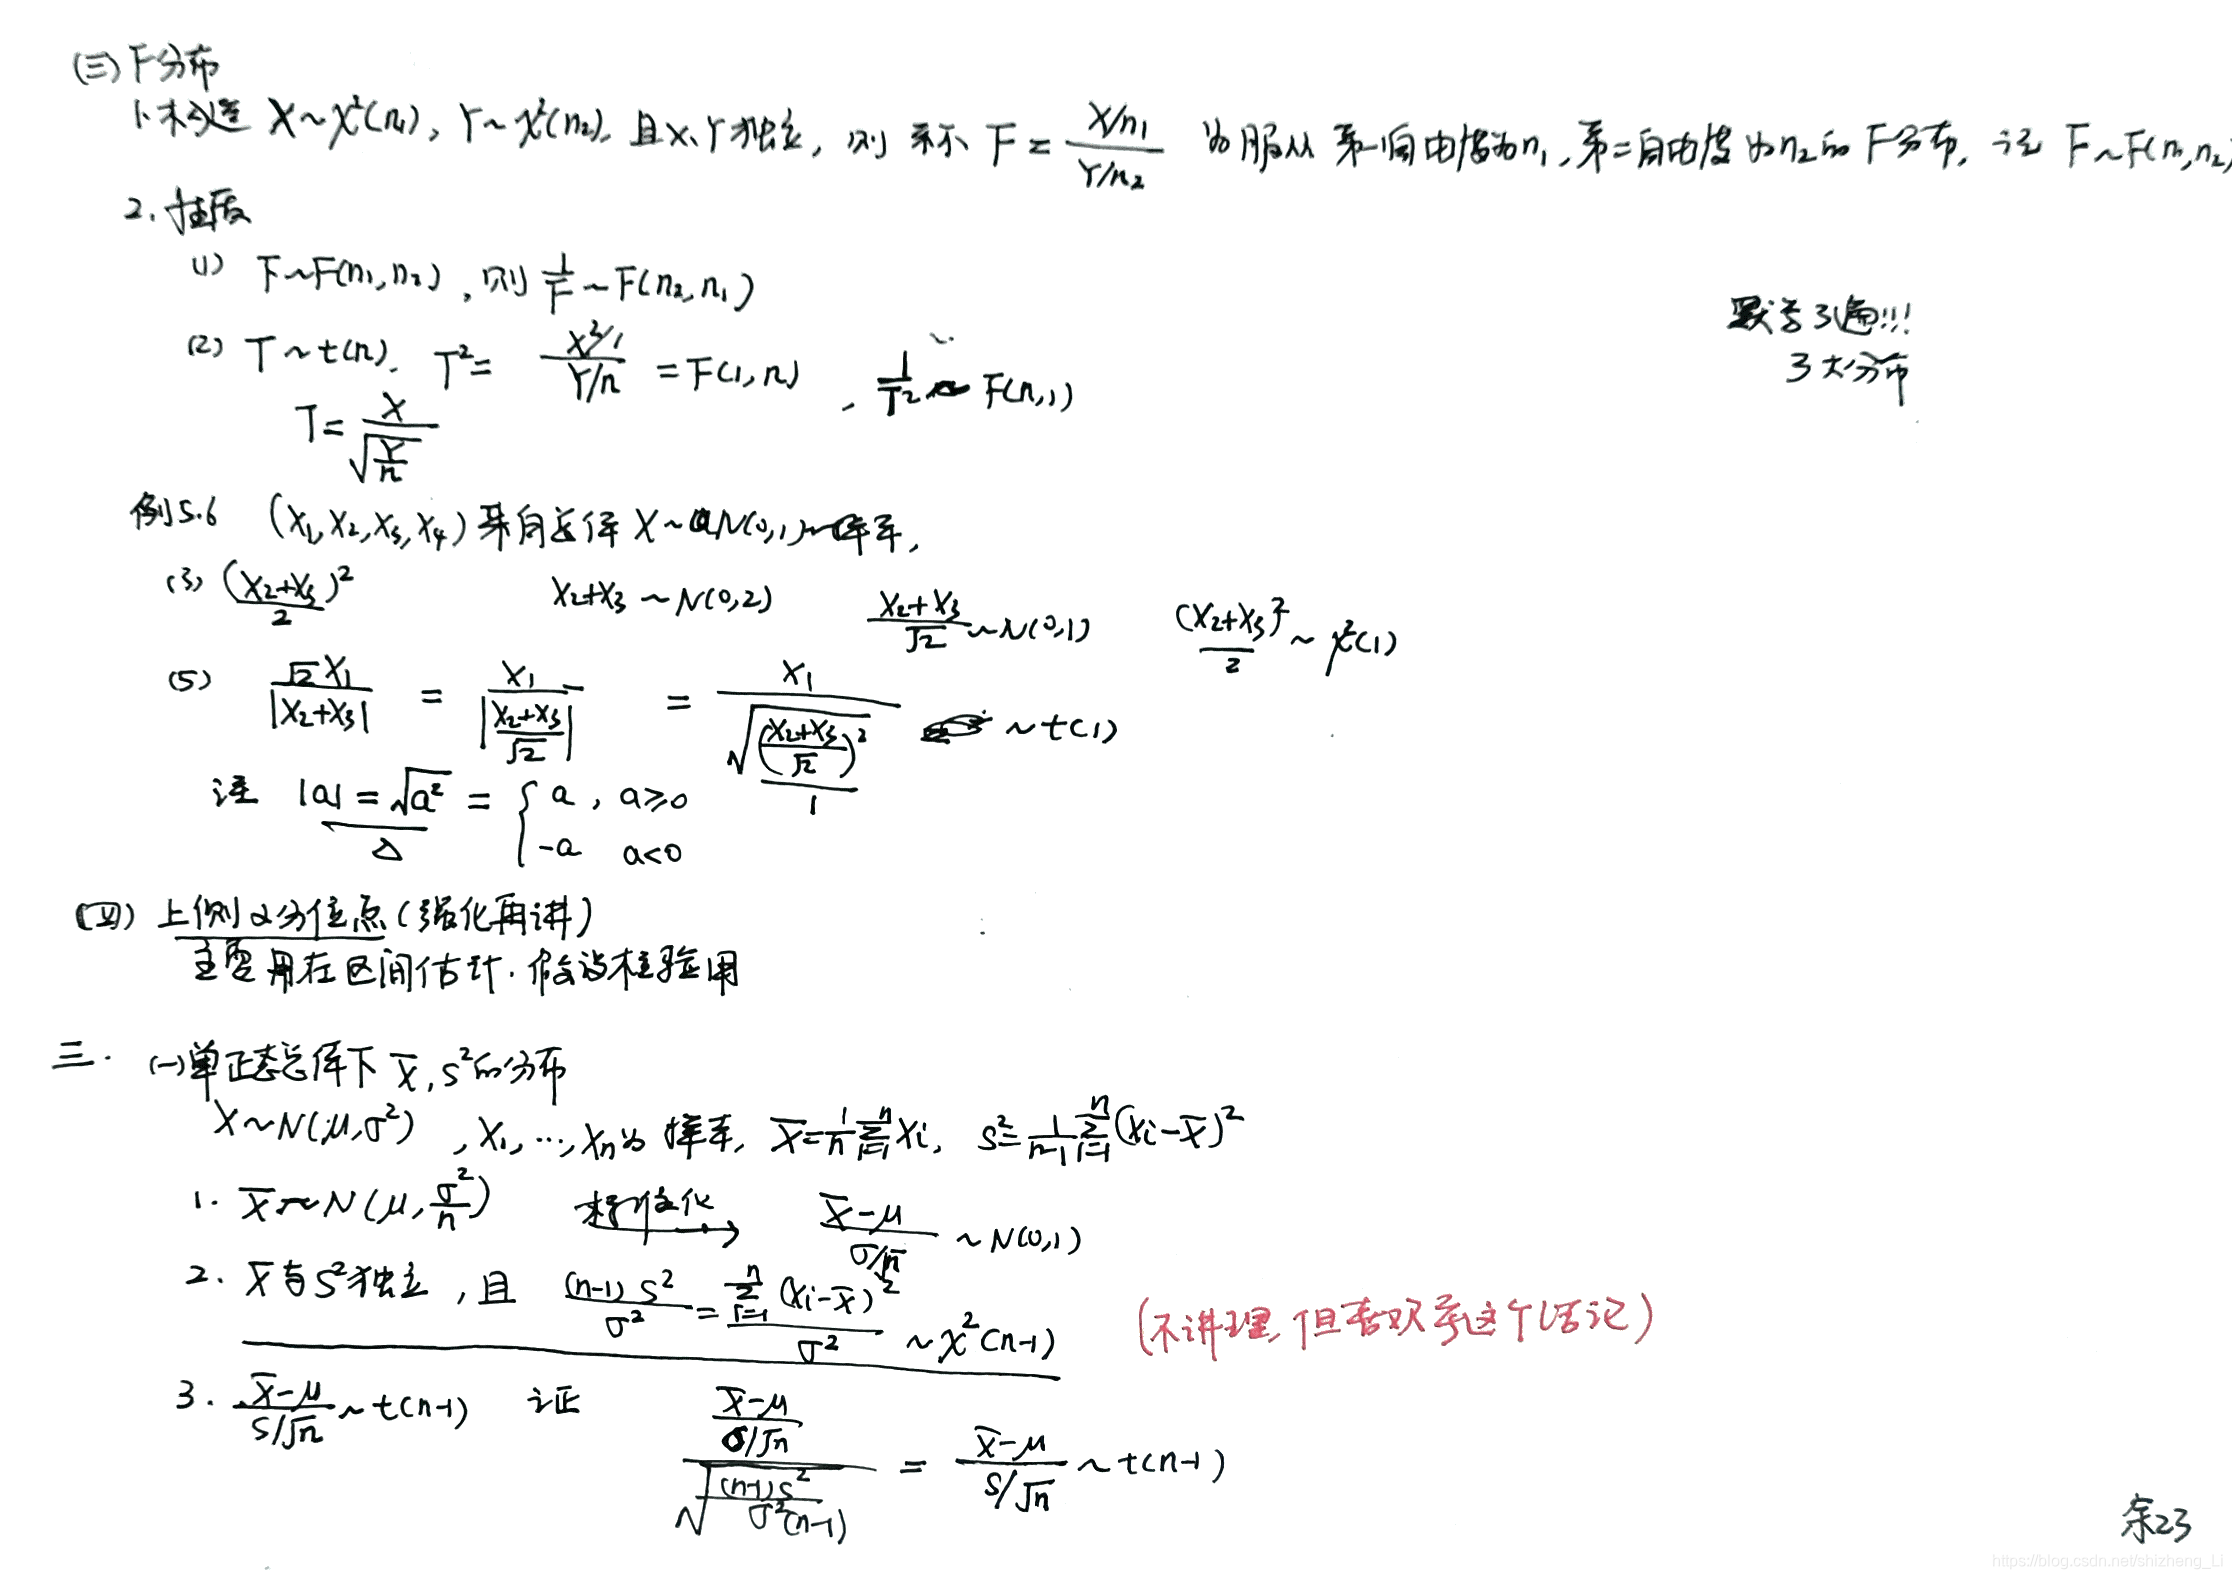 (三) F分布
1. 构造 X~χ²(n₁), Y~χ²(n₂), 且X、Y独立, 则 称 F = (X/n₁)/(Y/n₂) 为服从 第一自由度为n₁, 第二自由度为n₂的F分布, 记 F~F(n₁,n₂)
2. 性质
(1) F~F(n₁,n₂), 则 1/F ~ F(n₂,n₁)
(2) T~t(n). T² = (X²/1)/(Y/n) = F(1,n), 1/T² ~ F(n,1)
T = X/√(Y/n)
默写3遍!!!
3大分布
例5.6 (X₁,X₂,X₃,X₄)来自总体X~N(0,1)样本,
(3) (X₂+X₃)²/2 X₂+X₃~N(0,2) (X₂+X₃)/√2 ~N(0,1) (X₂+X₃)²/2 ~ χ²(1)
(5) √2X₁/|X₂+X₃| = X₁/|(X₂+X₃)/√2| = X₁/√(((X₂+X₃)/√2)²/1) ~t(1)
注 |a| = √a² = { a, a≥0
-a a<0
△
(四) 上侧α分位点(强化再讲)
主要用在区间估计. 假设检验用
三. (一)单正态总体下 X̄, S²的分布
X~N(μ,σ²), X₁,…,Xn为 样本, X̄=1/n Σⁿᵢ₌₁ Xi, S²=1/(n-1) Σⁿᵢ₌₁ (Xi-X̄)²
1. X̄~N(μ, σ²/n) 标准化→ (X̄-μ)/(σ/√n) ~N(0,1)
2. X̄与S²独立, 且 (n-1)S²/σ² = Σⁿᵢ₌₁ (Xi-X̄)²/σ² ~χ²(n-1) (不讲理, 但喜欢考这个 记)
3. (X̄-μ)/(S/√n) ~t(n-1) 证 ((X̄-μ)/(σ/√n))/√((n-1)S²/σ²(n-1)) = (X̄-μ)/(S/√n) ~t(n-1)
余23
https://blog.csdn.net/shizheng_Li